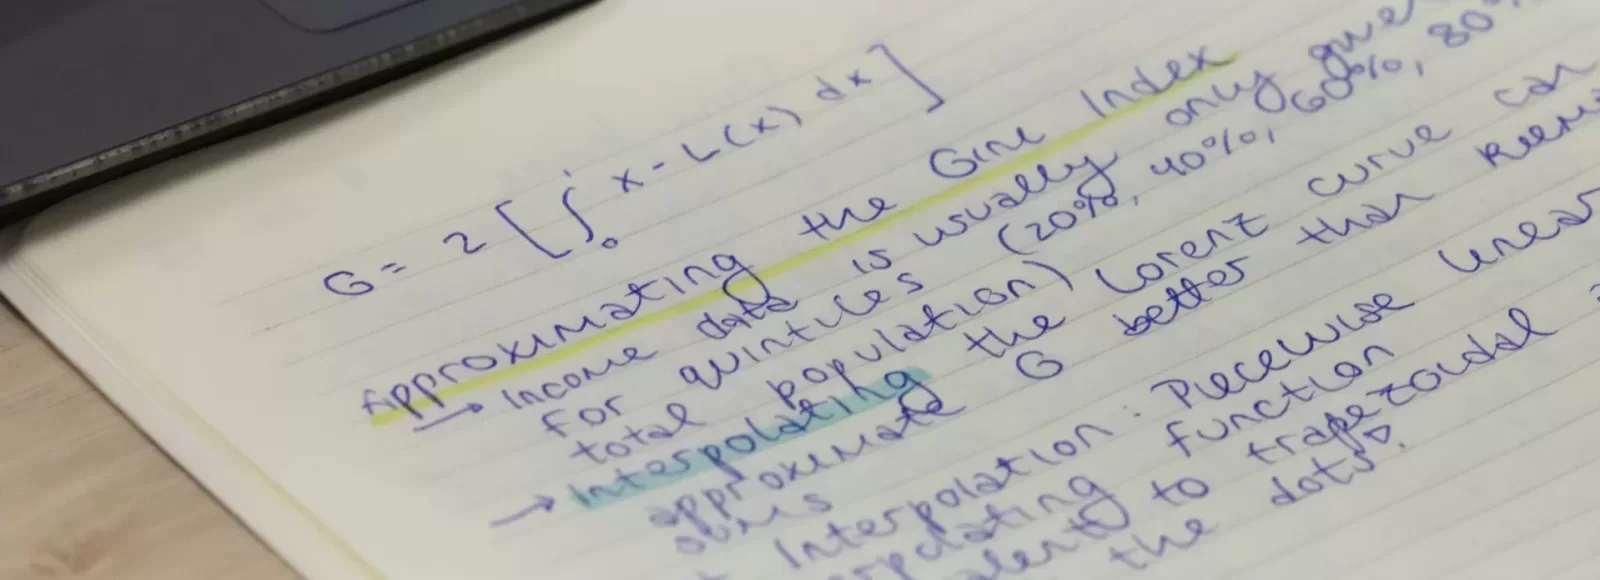 G = 2 [ ∫₀¹ x - L(x) dx ]
Approximating the Gini Index
→ Income data is usually only given
for quintiles (20%, 40%, 60%, 80%
total population)
→ Interpolating the Lorenz curve can
approximate G better than Riem
sums
Interpolation: Piecewise linear
function
to trapezoidal
the dots.